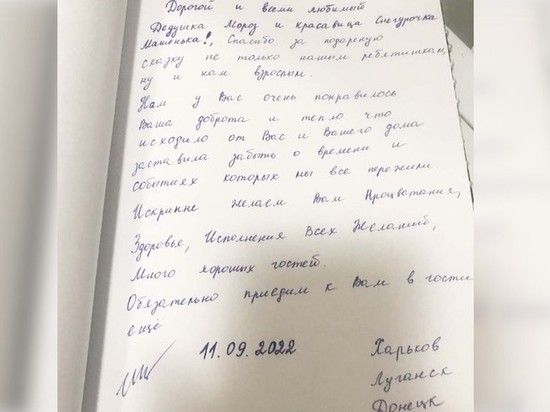 Дорогой и всеми любимый
Дедушка Мороз и красавица Снегурочка
Машенька!, Спасибо за подареную
сказку не только нашим ребятишкам,
ну и нам взрослым.
Нам у Вас очень понравилось
Ваша доброта и тепло что
исходило от Вас и Вашего дома
заставила забыть о времени и
событиях которых мы все пережили
Искринне желаем Вам Процветания,
Здоровья, Исполнения Всех Желаний,
Много хороших гостей.
Обязательно приедим к Вам в гости
ещё
11.09.2022
Харьков
Луганск
Донецк